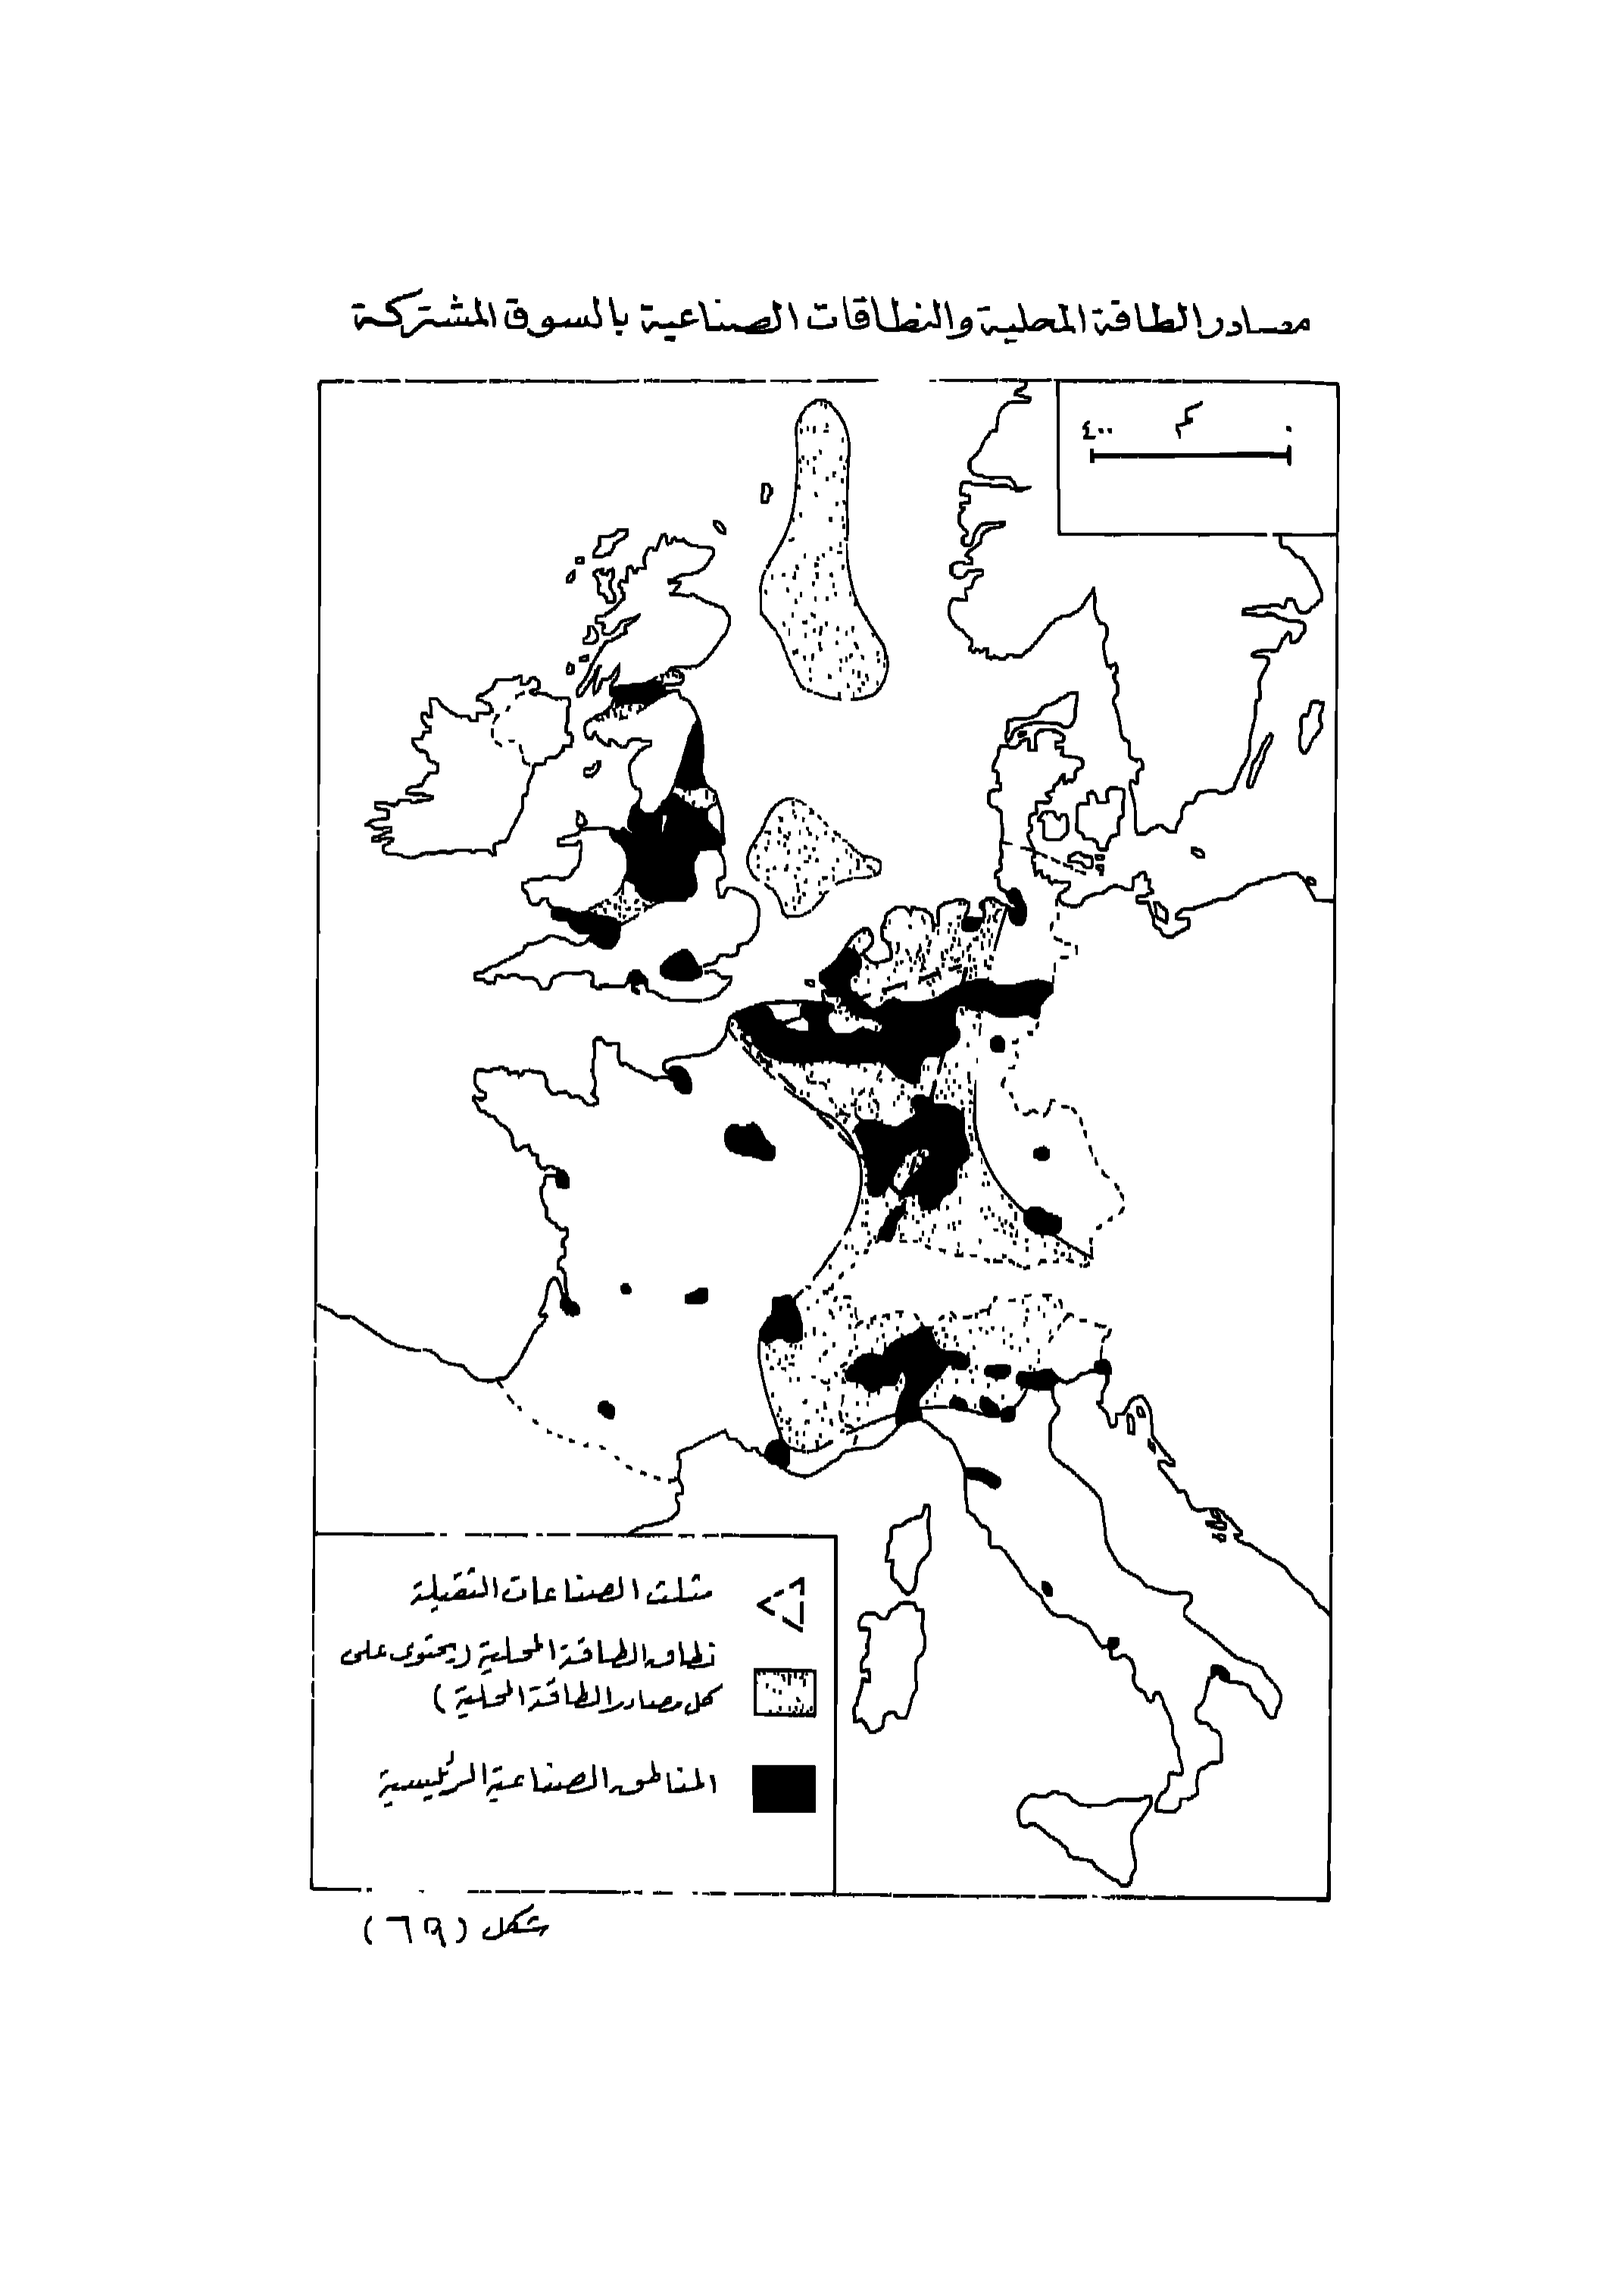 مصادر الطاقة المحلية والنطاقات الصناعية بالسوق المشتركة
٠ كم ٤٠٠
مثلث الصناعات الثقيلة
نطاق الطاقة المحلية (يحتوى على
كل مصادر الطاقة المحلية)
المناطق الصناعية الرئيسية
شكل (٦٩)